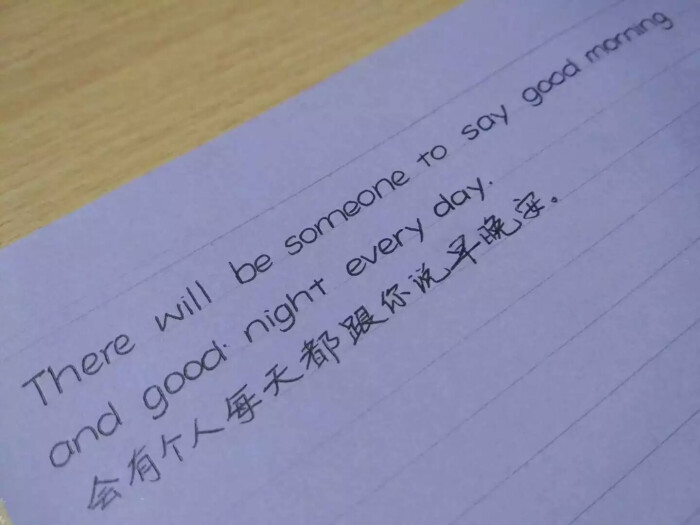 There will be someone to say good morning
and good night every day.
会有个人每天都跟你说早晚安。